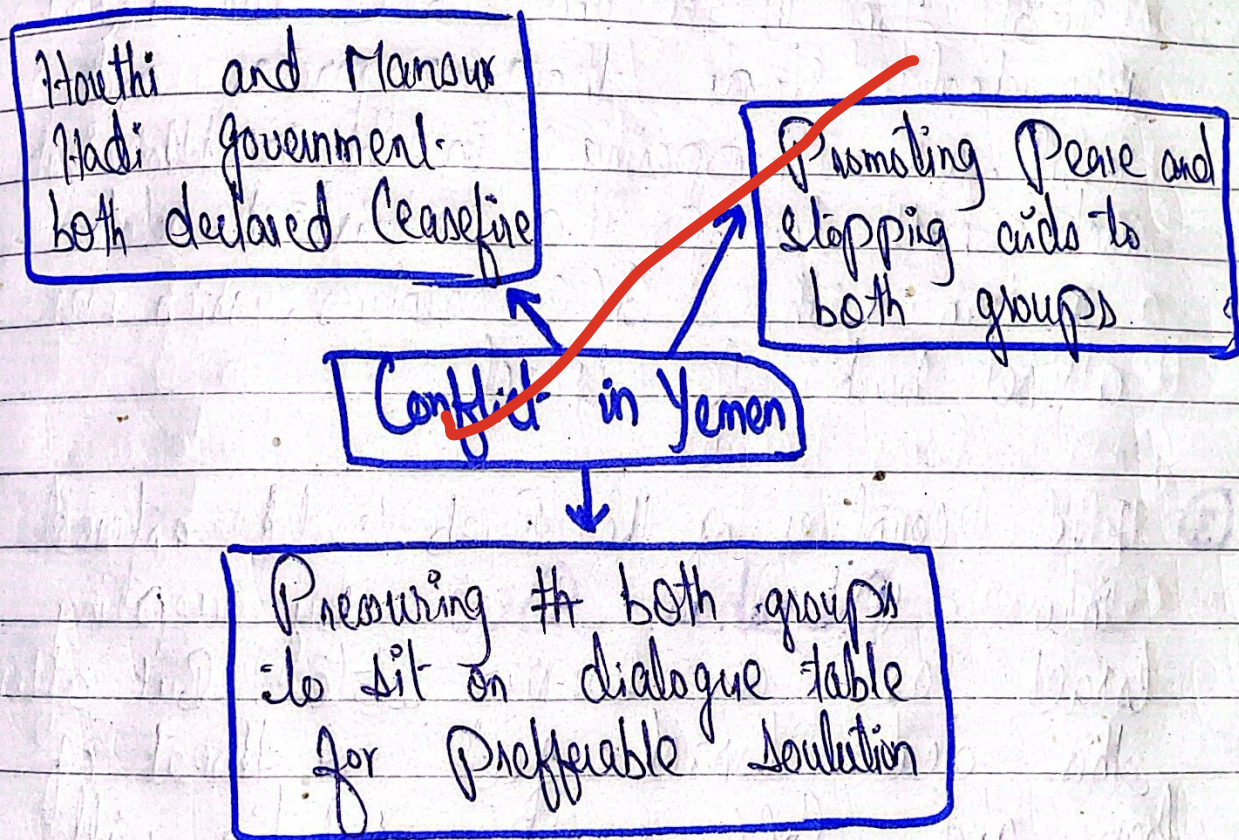 Houthi and Mansur
Hadi government
both declared Ceasefire
Promoting Peace and
stopping aids to
both groups
Conflict in Yemen
Pressuring both groups
to sit on dialogue table
for Prefferable soulution